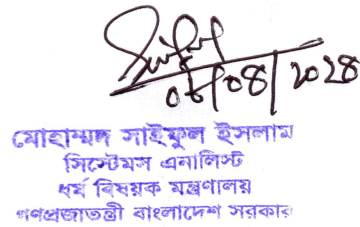 ০৪/২০২৪
মোহাম্মদ সাইফুল ইসলাম
সিস্টেমস এনালিস্ট
ধর্ম বিষয়ক মন্ত্রণালয়
গণপ্রজাতন্ত্রী বাংলাদেশ সরকার